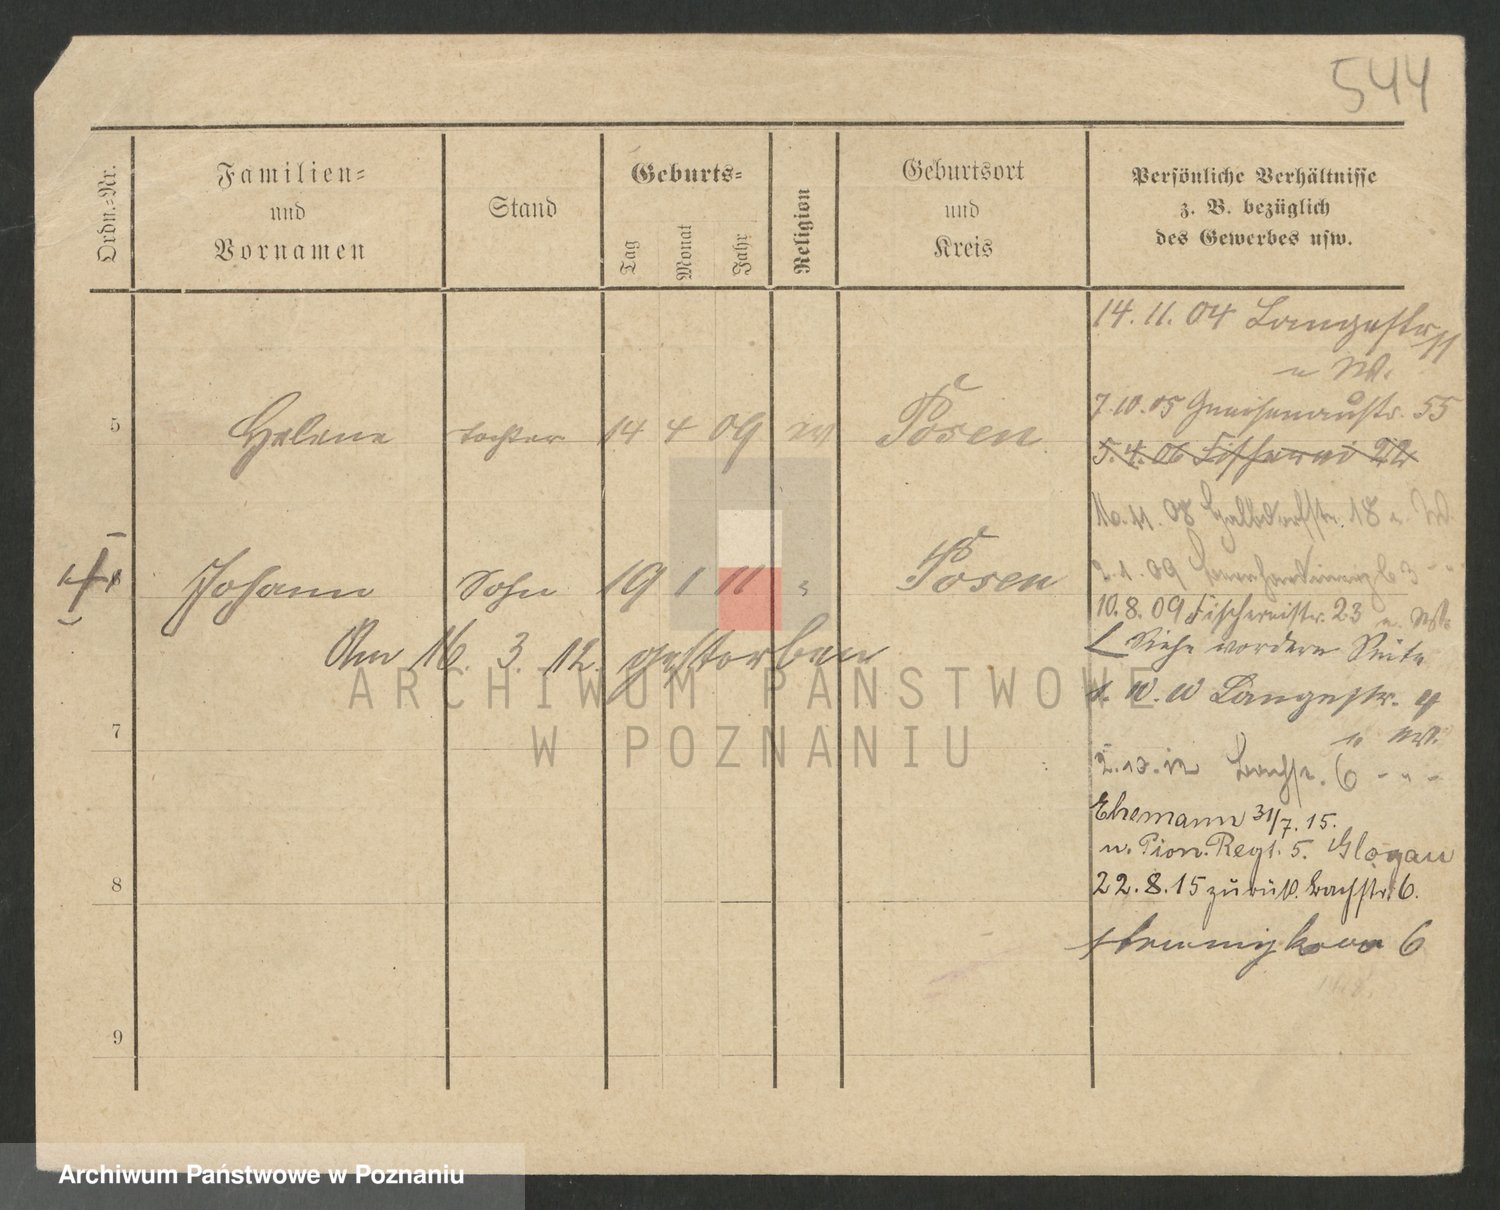 544
Ordn.-Nr.
Familien-
und
Vornamen
Stand
Geburts-
Tag
Monat
Jahr
Religion
Geburtsort
und
Kreis
Persönliche Verhältnisse
z. B. bezüglich
des Gewerbes usw.
14. 11. 04 Langestr. 11
7. 10. 05 Gneisenaustr. 55
5 Helene Tochter 14 4 09 Posen
5. 4. 06 Fischerei 22
16. 11. 08 18
6 Johann Sohn 19 1 11 " Posen
2. 1. 09
10. 8. 09 Fischereistr. 23
Am 16. 3. 12. gestorben
Siehe vordere Seite
Langestr.
7
2. 10. 12 Bachstr. 6 - " -
Ehemann 31/7. 15.
Pion. Regt. 5. Glogau
8
22. 8. 15 zurück. Bachstr. 6.
6
9
ARCHIWUM PAŃSTWOWE
W POZNANIU
Archiwum Państwowe w Poznaniu